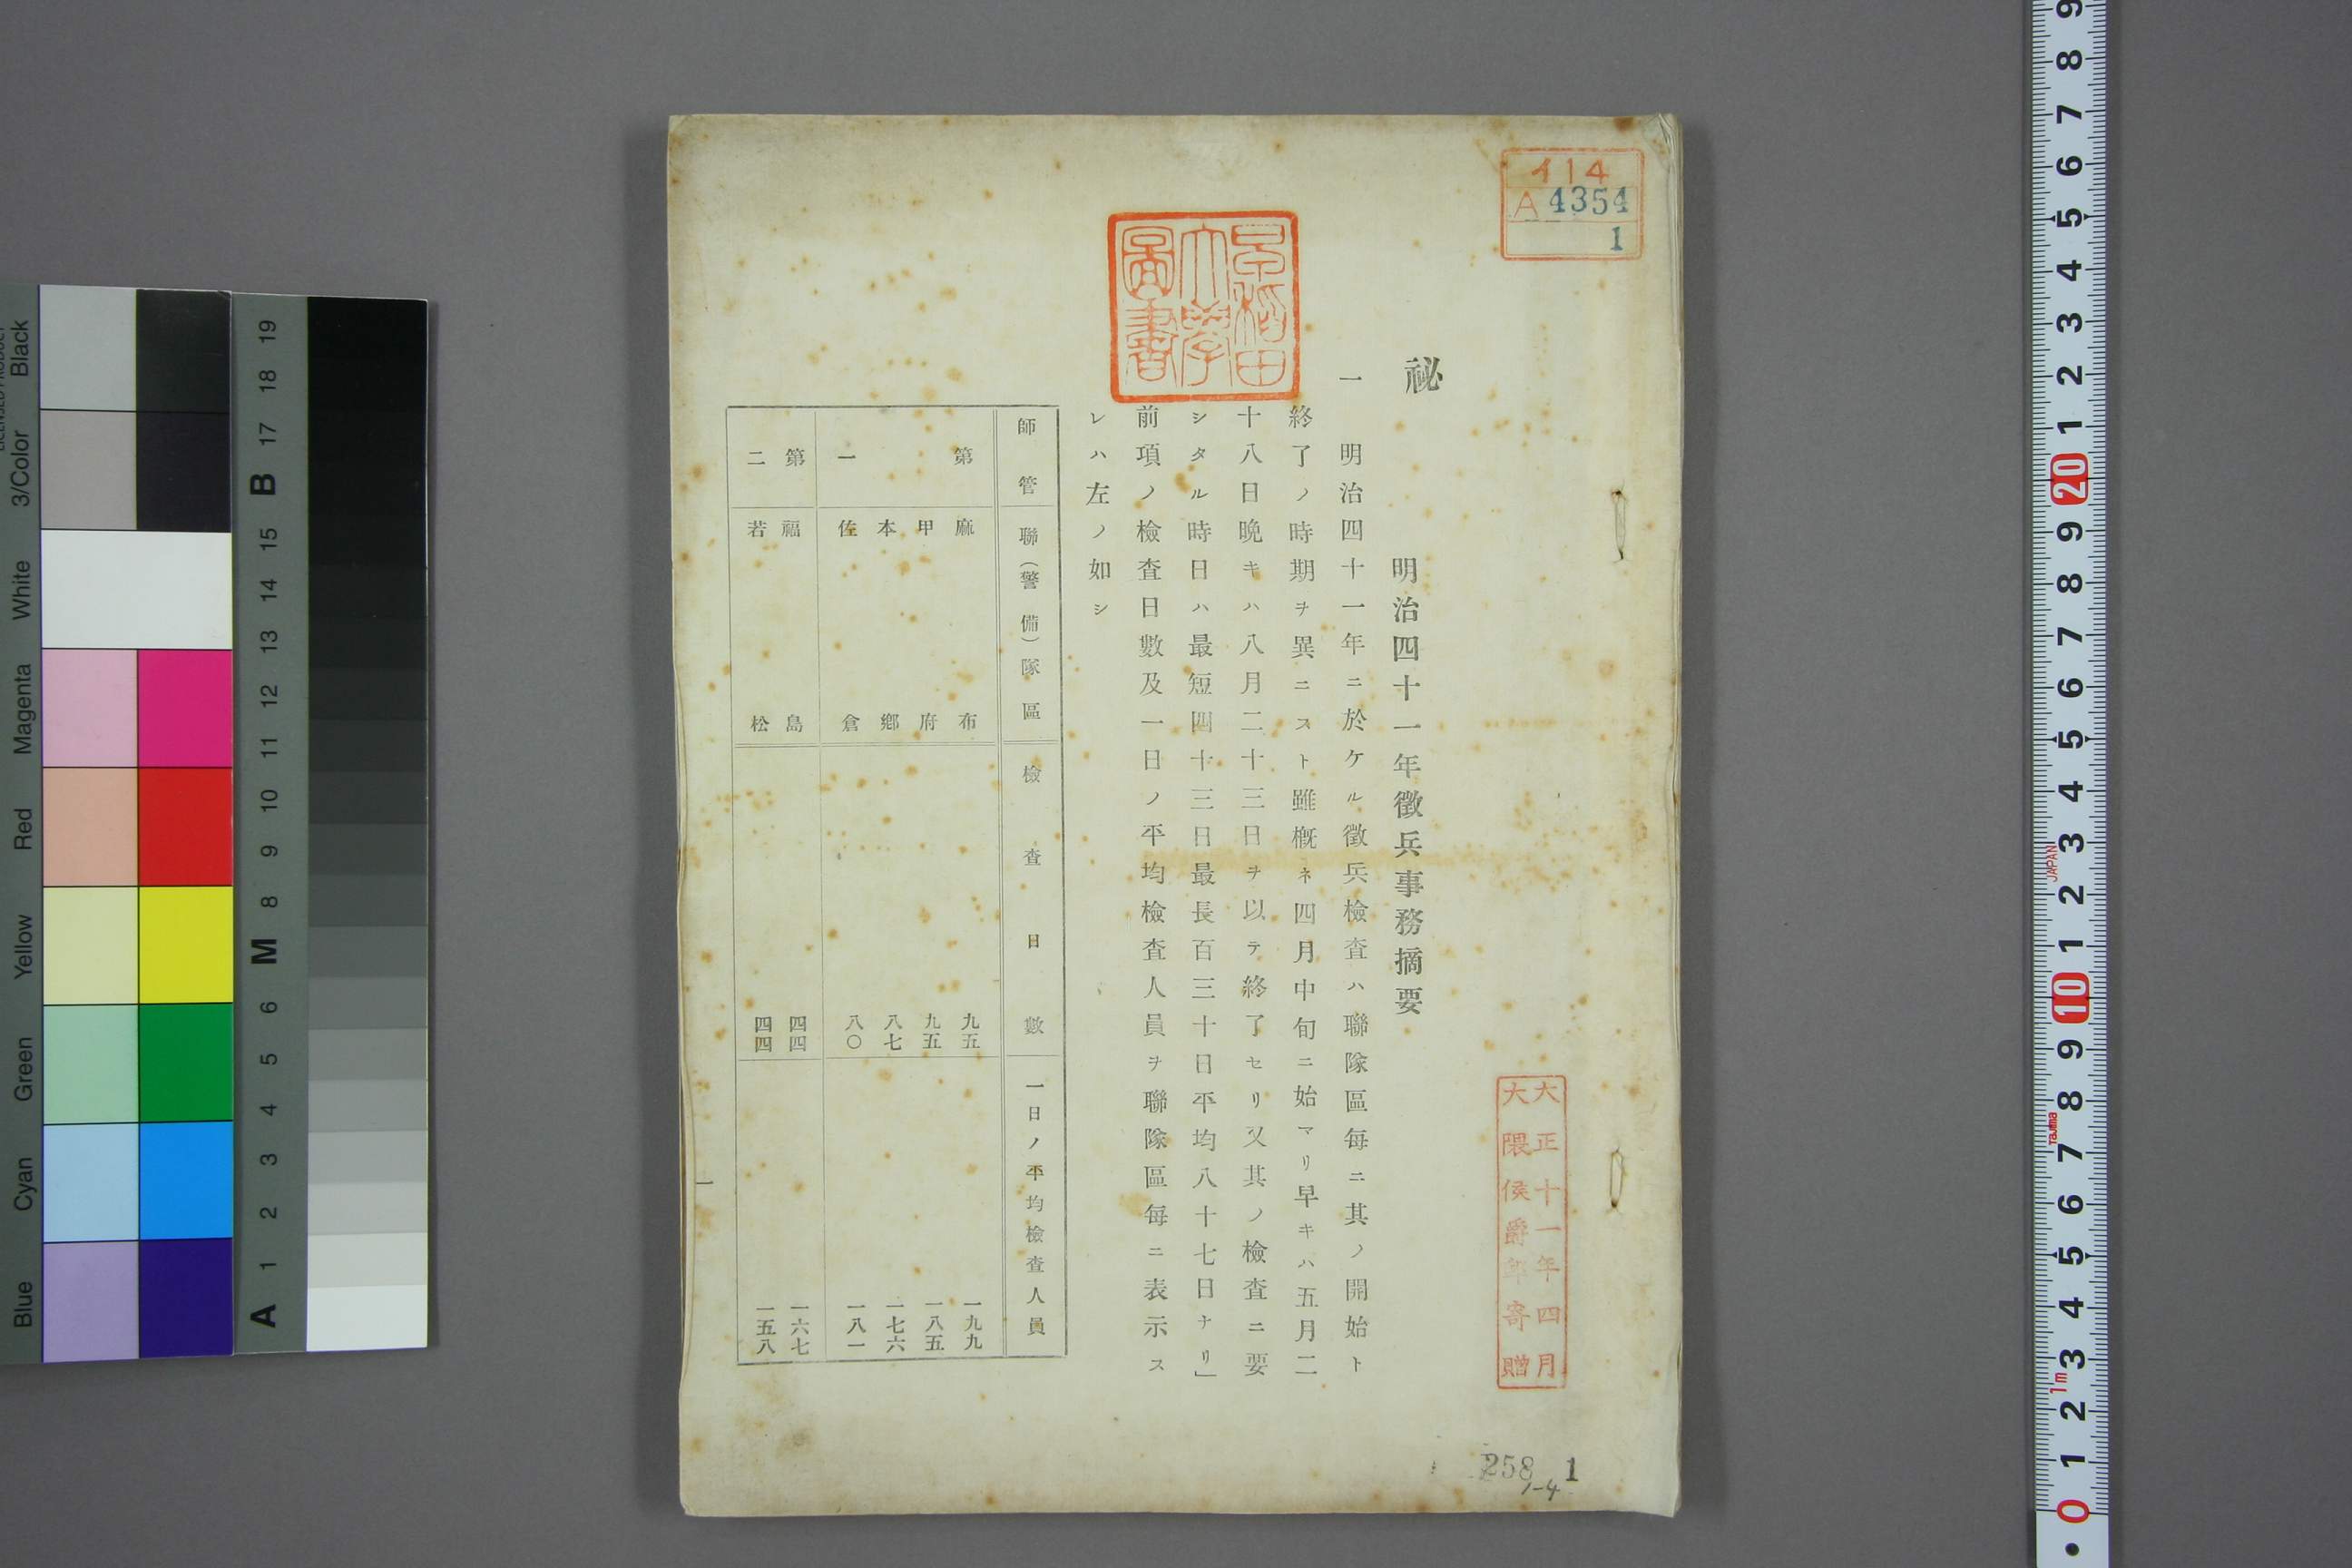 イ14
A 4354
1
早稲田
大學
圖書
秘
明治四十一年徵兵事務摘要
一　明治四十一年ニ於ケル徵兵檢査ハ聯隊區每ニ其ノ開始ト
終了ノ時期ヲ異ニスト雖槪ネ四月中旬ニ始マリ早キハ五月二
十八日晩キハ八月二十三日ヲ以テ終了セリ又其ノ檢査ニ要
シタル時日ハ最短四十三日最長百三十日平均八十七日ナリ」
前項ノ檢査日數及一日ノ平均檢査人員ヲ聯隊區每ニ表示ス
レハ左ノ如シ
師管　聯（警備）隊區　檢査日數　一日ノ平均檢査人員
第　麻布　九五　一九九
甲府　九五　一八五
本鄕　八七　一七六
一　佐倉　八〇　一八一
第　福島　四四　一六七
二　若松　四四　一五八
一
大正十一年四月
大隈侯爵邸寄贈
258 1
1-4
Black
3/Color
White
Magenta
Red
Yellow
Green
Cyan
Blue
A 1 2 3 4 5 6 M 8 9 10 11 12 13 14 15 B 17 18 19
0 1 2 3 4 5 6 7 8 9 10 1 2 3 4 5 6 7 8 9 20 1 2 3 4 5 6 7 8 9
1m
Tajima
JAPAN